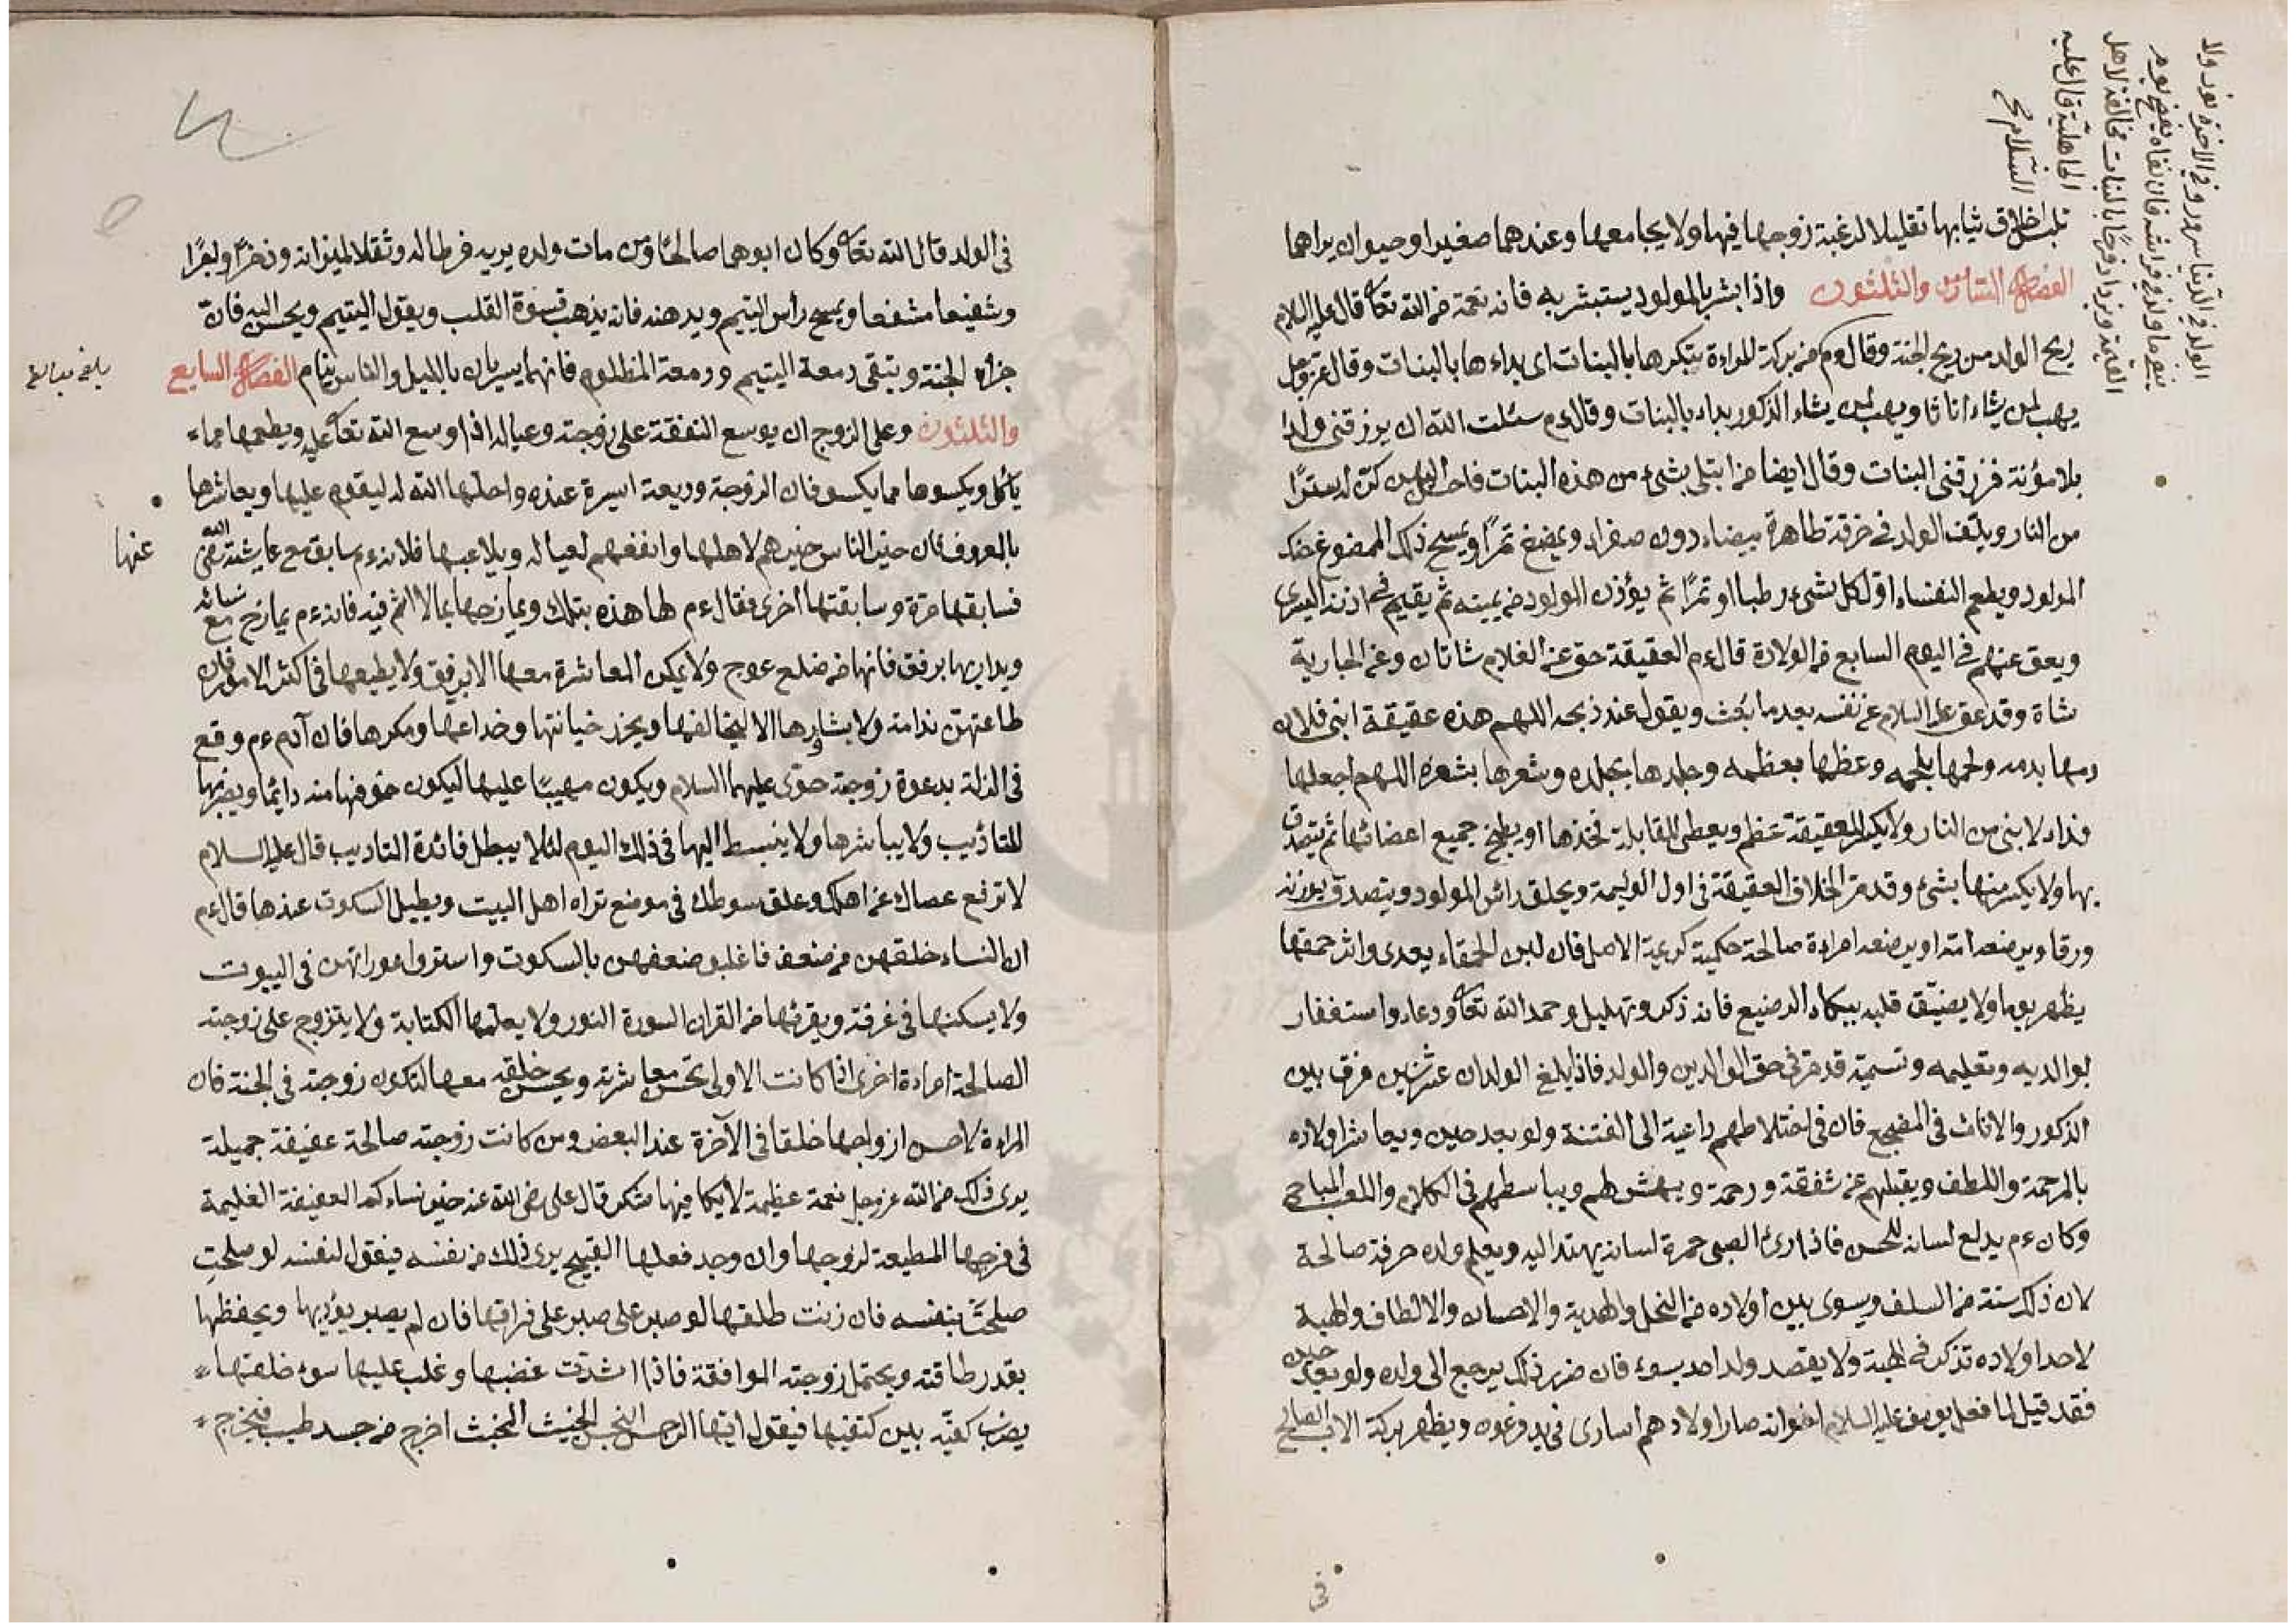 تلبس اخلاق ثيابها تقليلا لرغبة زوجها فيها ولا يجامعها وعندهما صغير او حيوان يراهما
الفصل السادس والثلثون واذا بشر بالمولود يستبشر به فانه نعمة من الله تعا قال عليه السلام
ريح الولد من ريح الجنة وقال ءم من بركة المراءة تبكرها بالبنات اى بداءها بالبنات وقال عز وجل
يهب لمن يشاء اناثا ويهب لمن يشاء الذكور بداء بالبنات وقال ءم سئلت الله ان يرزقنى ولدا
بلا مؤنة فرزقنى البنات وقال ايضا من ابتلى بشىء من هذه البنات فاحسن اليهن كن له سترًا
من النار ويلف الولد فى خرقة طاهرة بيضاء دون صفراء ويمضغ تمرًا ويمسح ذلك الممضوغ
المولود ويطعم النفساء اول كل شىء رطبا او تمرًا ثم يؤذن المولود من يمينه ثم يقيم فى اذنه اليسرى
ويعق عنهم فى اليوم السابع من الولادة قال ءم العقيقة حق عن الغلام شاتان وعن الجارية
شاة وقد عق عليه السلام عن نفسه بعد ما بعث ويقول عند ذبحه اللهم هذه عقيقة ابنى فلان
دمها بدمه ولحمها بلحمه وعظمها بعظمه وجلدها بجلده وشعرها بشعره اللهم اجعلها
فداء لابنى من النار ولا يكسر للعقيقة عظم ويعطى للقابلة فخذها او يطبخ جميع اعضائها ثم يتصدق
بها ولا يكسر منها بشىء وقد مر الخلاق العقيقة فى اول الوليمة ويحلق رائس المولود ويتصدق بوزنه
ورقا ويرضعه امه او يرضعه امراءة صالحة حكيمة كريمة الاصل فان لبن الحمقاء يعدى واثر حمقها
يظهر يوما ولا يضيّق قلبه ببكاء الرضيع فانه ذكر وتهليل وحمد الله تعا ودعاء واستغفار
لوالديه وتعليمه وتسميته قد مر فى حق الوالدين والولد فاذ ايلغ الولدان عشر سنين فرق بين
الذكور والاناث فى المضجع فان فى اختلاطهم داعية الى الفتنة ولو بعد حين ويعاشر اولاده
بالمرحمة واللطف ويقبلهم عن شفقة ورحمة ويهش لهم ويباسطهم فى الكلام واللعب المباح
وكان ءم يدلع لسانه للحسن فاذا رئ الصبى حمرة لسانه يهتد اليه ويعلم ولده حرفة صالحة
لان ذلك سنة من السلف ويسوى بين اولاده من النحل والهدية والاحسان والالطاف والهبة
لاحد اولاده تذكر فى الهبة ولا يقصد ولد احد بسوء فان ضرر ذلك يرجع الى ولده ولو بعد حين
فقد قيل لما فعل يوسف عليه السلام اخوانه صار اولادهم اسارى فى يد فرعون ويظهر بركة الاب الصالح
فى
الولد فى الدنيا سرور وفى الاخرة نور ولا
ينفى ما ولد فى فراشه فان نفاه يفضح يوم
القيمة ويزداد فرحًا بالبنات مخالفة لاهل
الجاهلية قال عليه
السلام صح
فى الولد قال الله تعا وكان ابوهما صالحًا ومن مات ولده يريه فرطا له وثقلا لميزانه وذخرًا
وشفيعا مشفعا ويمسح رأس اليتيم ويدهنه فانه يذهب قسوة القلب ويقول اليتيم ويحسن اليه فان
جزاه الجنة ويتقى دمعة اليتيم ودمعة المظلوم فانهما يسريان بالليل والناس ينام الفصل السابع
والثلثون وعلى الزوج ان يوسع النفقة على زوجته وعياله اذا وسع الله تعا عليه ويطعمها مماء
ياكل ويكسوها مما يكسو فان الزوجة وديعة اسيرة عنده واحلها الله له ليقوم عليها ويعاشرها
بالمعروف فان خير الناس خيرهم لاهلها وانفعهم لعياله ويلاعبها فلانه ءم سابق مع عايشة رضى الله
عنها
فسابقها مرة وسابقتها اخرى فقال ءم لها هذه بتلك ويمازحها بما لا اثم فيه فانه ءم يمازح مع نسائه
ويداريها برفق فانها من ضلع عوج ولا يمكن المعاشرة معها الا برفق ولا يطيعها فى اكثر الامور فان
طاعتهن ندامة ولا يشاورها الا ليخالفها ويحذر خيانتها وخداعها ومكرها فان آدم ءم وقع
فى الزلة بدعوة زوجته حوى عليهما السلام ويكون مهيبًا عليها ليكون خوفها منه دائما ويضربها
للتاديب ولا يباشرها ولا ينبسط اليها فى ذلك اليوم لئلا يبطل فائدة التاديب قال عليه السلام
لا ترفع عصاك عن اهلك وعلق سوطك فى موضع تراه اهل البيت ويطيل السكوت عندها قال ءم
ان النساء خلقهن من ضعف فاغلبو ضعفهن بالسكوت واستروا عوراتهن فى البيوت
ولا يسكنها فى غرفة ويقرئها من القران السورة النور ولا يعلمها الكتابة ولا يتزوج على زوجته
الصالحة امراءة اخرى اذا كانت الاولى تحسن معاشرته ويحسن خلقه معها لتكون زوجته فى الجنة فان
المراءة لاحسن ازواجها خلقا فى الآخرة عند البعض ومن كانت زوجته صالحة عفيفة جميلة
يرى ذلك من الله عز وجل نعمة عظيمة لا يكا فيها شكر قال على رضى الله عنه خير نساءكم العفيفة الغليمة
فى فرجها المطيعة لزوجها وان وجد فعلها القبيح يرى ذلك من نفسه فيقول لنفسه لو صلحتِ
صلحتْ بنفسه فان زنت طلقها لو صبر على صبر على فراقها فان لم يصبر يؤدبها ويحفظها
بقدر طاقته ويحتمل زوجته الموافقة فاذا اشدت غضبها وغلب عليها سوء خلقها
يضرب كفيه بين كتفيها فيقول ايتها الرجس النجس الخبيث المخبث اخرج من جسد طيب فيخرج